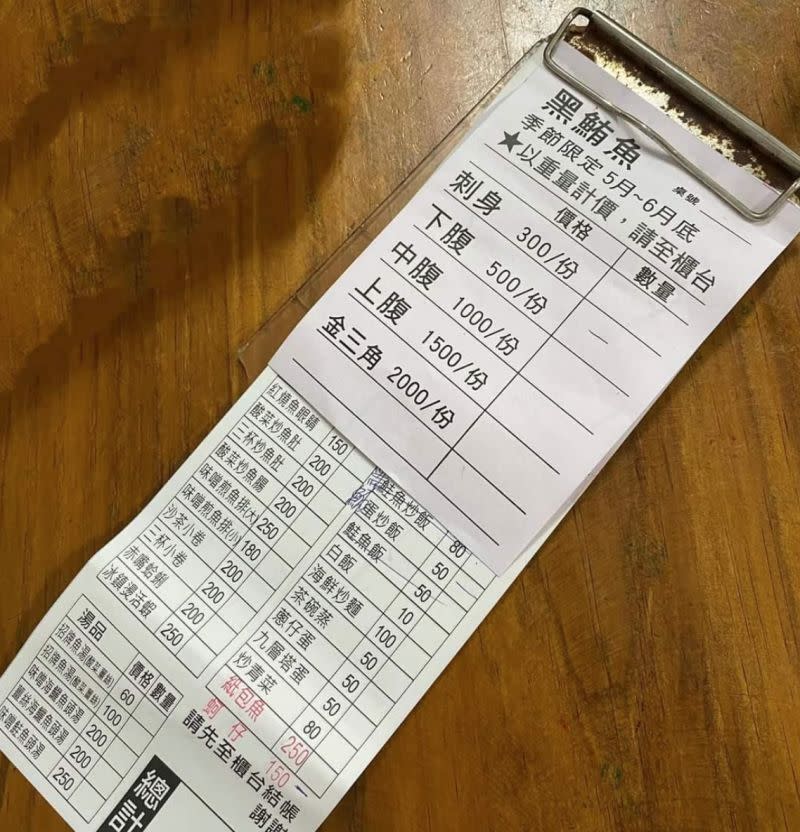 黑鮪魚
桌號
季節限定 5月~6月底
★以重量計價,請至櫃台
價格 數量
刺身 300/份
下腹 500/份
中腹 1000/份
上腹 1500/份
金三角 2000/份
紅燒魚眼睛 150
酸菜炒魚肚 200
三杯炒魚肚 200
酸菜炒魚腸 200
味噌煎魚排(大) 250
味噌煎魚排(小) 180
沙茶小卷 200
三杯小卷 200
赤嘴蛤蜊 200
冰鎮燙活蝦 250
鮭魚炒飯 80
蛋炒飯 50
鮭魚飯 50
白飯 10
海鮮炒麵 100
茶碗蒸 50
蔥仔蛋 50
九層塔蛋 50
炒青菜 80
紙包魚 250
蚵仔 150
湯品 價格 數量
招牌魚湯 60
招牌魚湯 100
味噌海鱺魚頭湯 200
薑絲海鱺魚頭湯 200
味噌鮭魚頭湯 250
請先至櫃台結帳
謝謝
總計